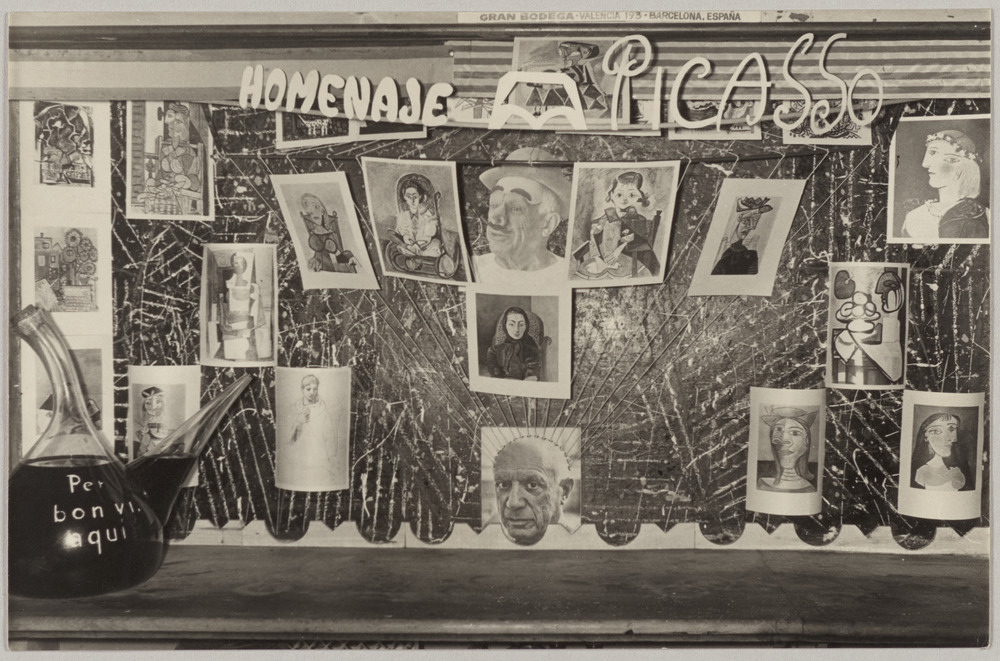 GRAN BODEGA - VALENCIA 193 - BARCELONA, ESPAÑA
HOMENAJE A PICASSO
Per
bon vi.
aqui